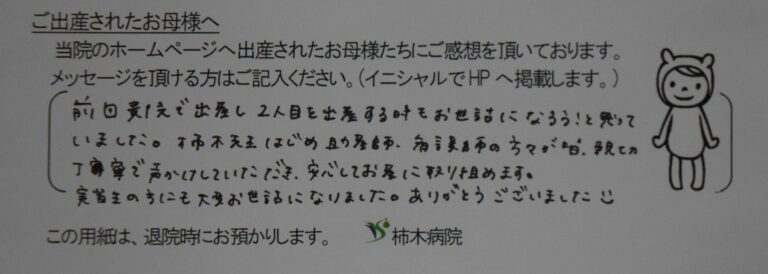 ご出産されたお母様へ
当院のホームページへ出産されたお母様たちにご感想を頂いております。
メッセージを頂ける方はご記入ください。（イニシャルでHPへ掲載します。）
前回貴院で出産し2人目を出産する時もお世話になろう！と思って
いました。柿木先生はじめ助産師、看護師の方々が皆、親切
丁寧で声かけしていただき、安心してお産に取り組めます。
実習生の方にも大変お世話になりました。ありがとうございました
この用紙は、退院時にお預かりします。 柿木病院